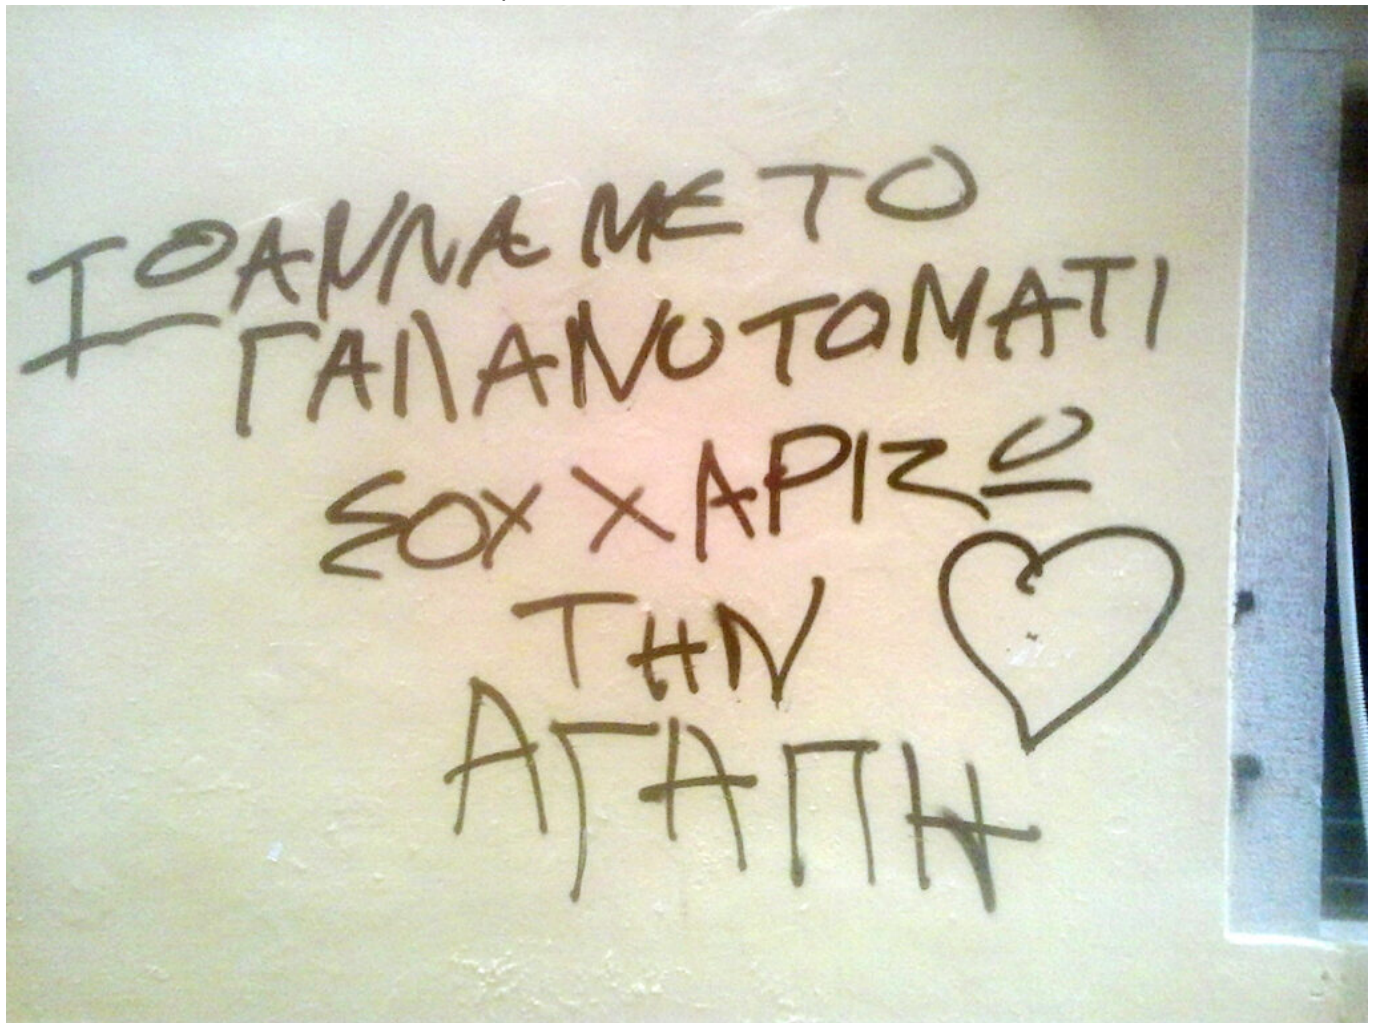 ΙΩΑΝΝΑ ΜΕ ΤΟ
ΓΑΛΑΝΟ ΤΟ ΜΑΤΙ
ΣΟΥ ΧΑΡΙΖΩ
ΤΗΝ
ΑΓΑΠΗ